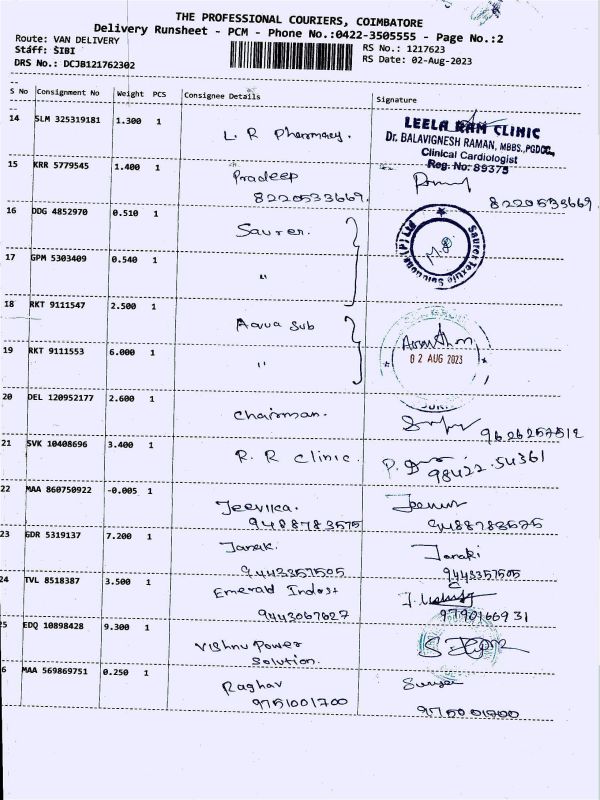 THE PROFESSIONAL COURIERS, COIMBATORE
Delivery Runsheet - PCM - Phone No.:0422-3505555 - Page No.:2
Route: VAN DELIVERY
RS No.: 1217623
Staff: SIBI
RS Date: 02-Aug-2023
DRS No.: DCJB121762302
S No Consignment No Weight PCS Consignee Details Signature
14 SLM 325319181 1.300 1 L. R Pharmacy.
LEELA RAM CLINIC
Dr. BALAVIGNESH RAMAN, MBBS.,PGDCC.,
Clinical Cardiologist
Reg. No: 89375
15 KRR 5779545 1.400 1 Pradeep
8220533669. 8220533669.
16 DDG 4852970 0.510 1 Saurer.
Saurer Textile Solutions (P) Ltd
17 GPM 5303409 0.540 1 "
18 RKT 9111547 2.500 1 Aqua Sub
02 AUG 2023
19 RKT 9111553 6.000 1 "
20 DEL 120952177 2.600 1 Chairman.
9626257512
21 SVK 10408696 3.400 1 R. R Clinic.
98422.54361
22 MAA 860750922 -0.005 1 Jeevika.
9488783575 9488783575
23 GDR 5319137 7.200 1 Janaki. Janaki
9443357505 9443357505
24 TVL 8518387 3.500 1 Emerald Indust
9443067627 9790166931
5 EDQ 10898428 9.300 1 Vishnu Power
Solution.
6 MAA 569869751 0.250 1 Raghav
9751001700